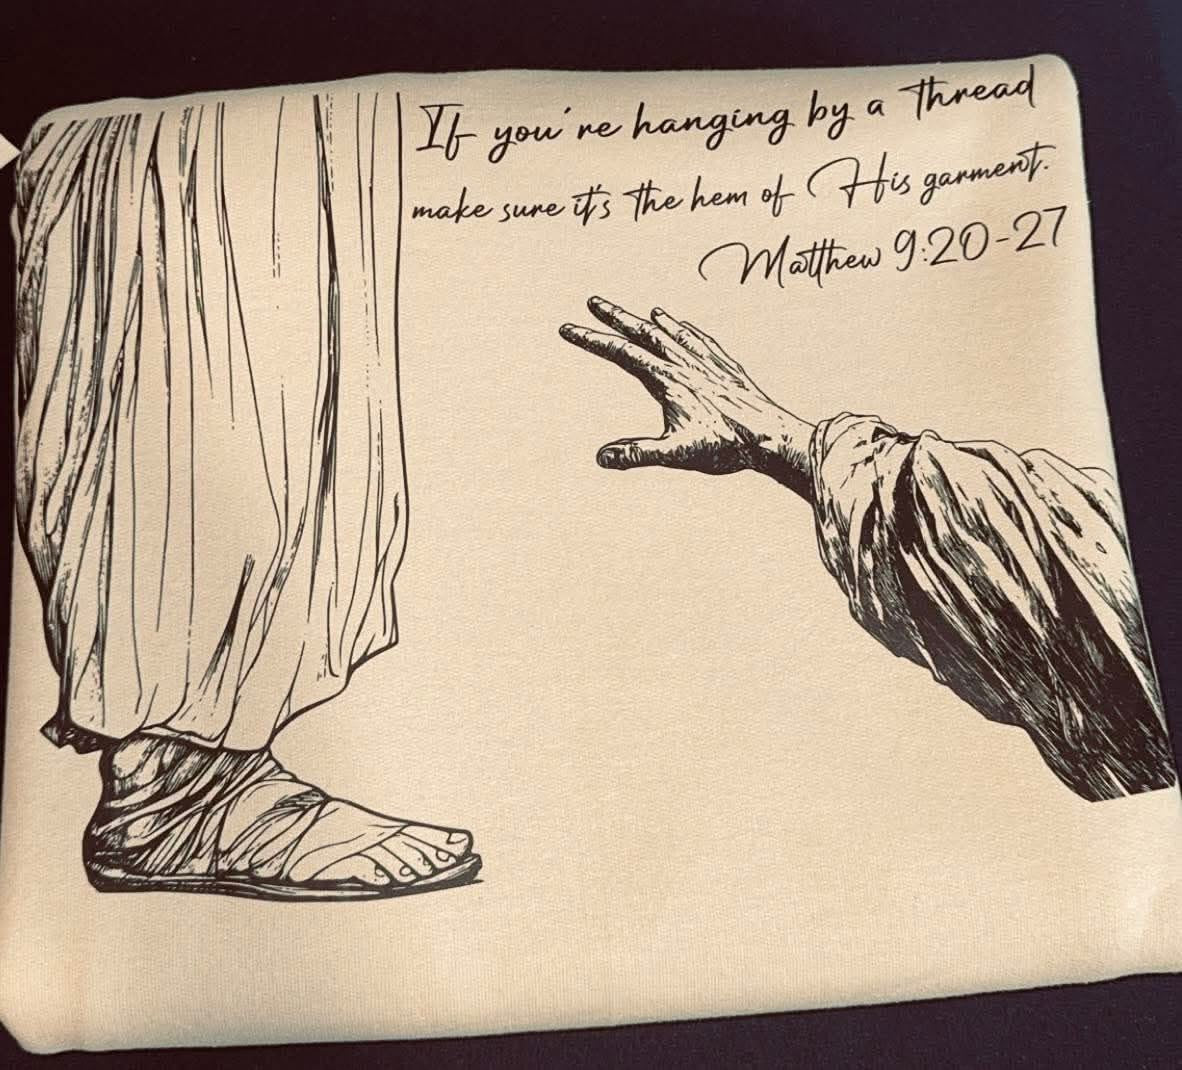 If you're hanging by a thread
make sure it's the hem of His garment.
Matthew 9:20-27